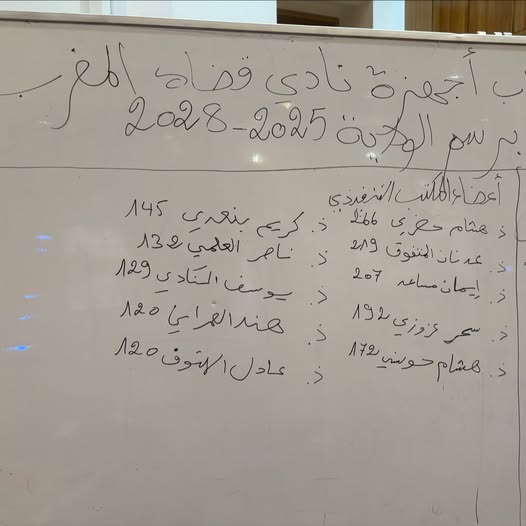 ب أجهزة نادي قضاة المغرب
برسم الولاية 2025-2028
أعضاء المكتب التنفيذي
ذ. هشام حضري 266
ذ. عدنان المتفوق 219
ذ. إيمان مساعد 207
ذ. سحر عزوزي 192
ذ. هشام حوسني 172
ذ. كريم بنعدي 145
ذ. ناصر العلمي 132
ذ. يوسف 129
ذ. هند 120
ذ. عادل الهتوف 120